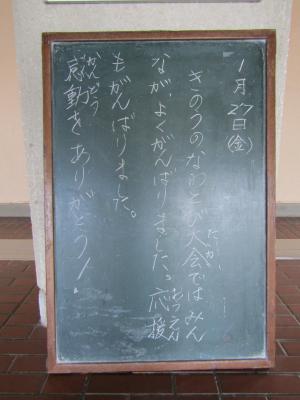 1月27日(金)
きのうのなわとび大会ではみん
なが、よくがんばりました。応援
もがんばりました。
感動をありがとう!
たいかい
おうえん
かんどう